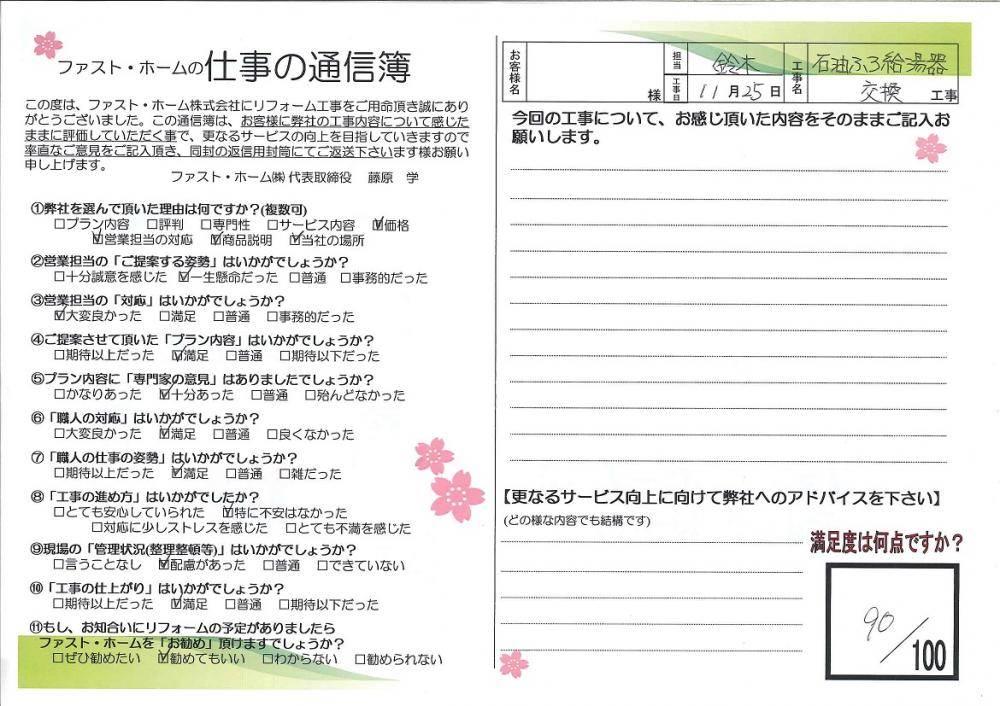 ファスト・ホームの仕事の通信簿
この度は、ファスト・ホーム株式会社にリフォーム工事をご用命頂き誠にあり
がとうございました。この通信簿は、お客様に弊社の工事内容について感じた
ままに評価していただく事で、更なるサービスの向上を目指していきますので
率直なご意見をご記入頂き、同封の返信用封筒にてご返送下さいます様お願い
申し上げます。
ファスト・ホーム㈱ 代表取締役 藤原 学
①弊社を選んで頂いた理由は何ですか?(複数可)
□プラン内容 □評判 □専門性 □サービス内容 ☑価格
☑営業担当の対応 ☑商品説明 ☑当社の場所
②営業担当の「ご提案する姿勢」はいかがでしょうか?
□十分誠意を感じた ☑一生懸命だった □普通 □事務的だった
③営業担当の「対応」はいかがでしょうか?
☑大変良かった □満足 □普通 □事務的だった
④ご提案させて頂いた「プラン内容」はいかがでしょうか?
□期待以上だった ☑満足 □普通 □期待以下だった
⑤プラン内容に「専門家の意見」はありましたでしょうか?
□かなりあった ☑十分あった □普通 □殆んどなかった
⑥「職人の対応」はいかがでしょうか?
□大変良かった ☑満足 □普通 □良くなかった
⑦「職人の仕事の姿勢」はいかがでしょうか?
□期待以上だった ☑満足 □普通 □雑だった
⑧「工事の進め方」はいかがでしたか?
□とても安心していられた ☑特に不安はなかった
□対応に少しストレスを感じた □とても不満を感じた
⑨現場の「管理状況(整理整頓等)」はいかがでしょうか?
□言うことなし ☑配慮があった □普通 □できていない
⑩「工事の仕上がり」はいかがでしょうか?
□期待以上だった ☑満足 □普通 □期待以下だった
⑪もし、お知合いにリフォームの予定がありましたら
ファスト・ホームを「お勧め」頂けますでしょうか?
□ぜひ勧めたい ☑勧めてもいい □わからない □勧められない
お客様名 様 担当 鈴木 工事名 石油ふろ給湯器
工事日 11月25日 交換 工事
今回の工事について、お感じ頂いた内容をそのままご記入お
願いします。
【更なるサービス向上に向けて弊社へのアドバイスを下さい】
(どの様な内容でも結構です)
満足度は何点ですか?
90/100